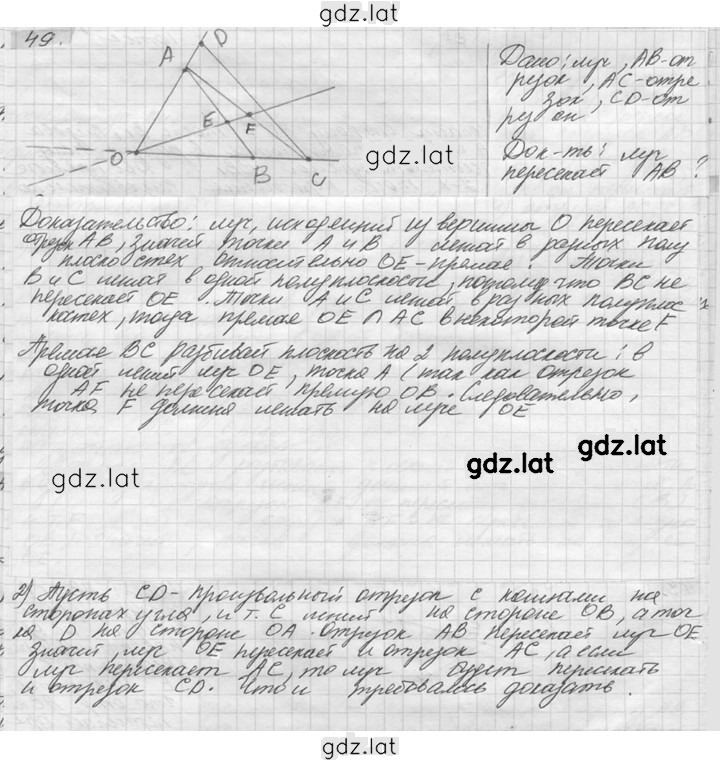 gdz.lat
49.
A
D
E
F
O
B
C
gdz.lat
Дано: луч, AB-от
резок, AC-отре
зок, CD-от
резок
Док-ть: луч
пересекает AB ?
Доказательство: луч, исходящий из вершины O пересекает
отрезок AB, значит точки A и B лежат в разных полу
плоскостях относительно OE-прямая. Точки
B и C лежат в одной полуплоскости, потому что BC не
пересекает OE. Точки A и C лежат в разных полуплос
костях, тогда прямая OE ∩ AC в некоторой точке F
Прямая BC разбивает плоскость на 2 полуплоскости: в
одной лежит луч OE, точка A (так как отрезок
AF не пересекает прямую OB. Следовательно,
точка F должна лежать на луче OE
gdz.lat
gdz.lat
gdz.lat
2) Пусть CD-произвольный отрезок с концами на
сторонах угла, и т. C лежит на стороне OB, а точ
ка D на стороне OA. Отрезок AB пересекает луч OE
значит, луч OE пересекает и отрезок AC, а если
луч пересекает AC, то луч будет пересекать
и отрезок CD. Что и требовалось доказать.
gdz.lat